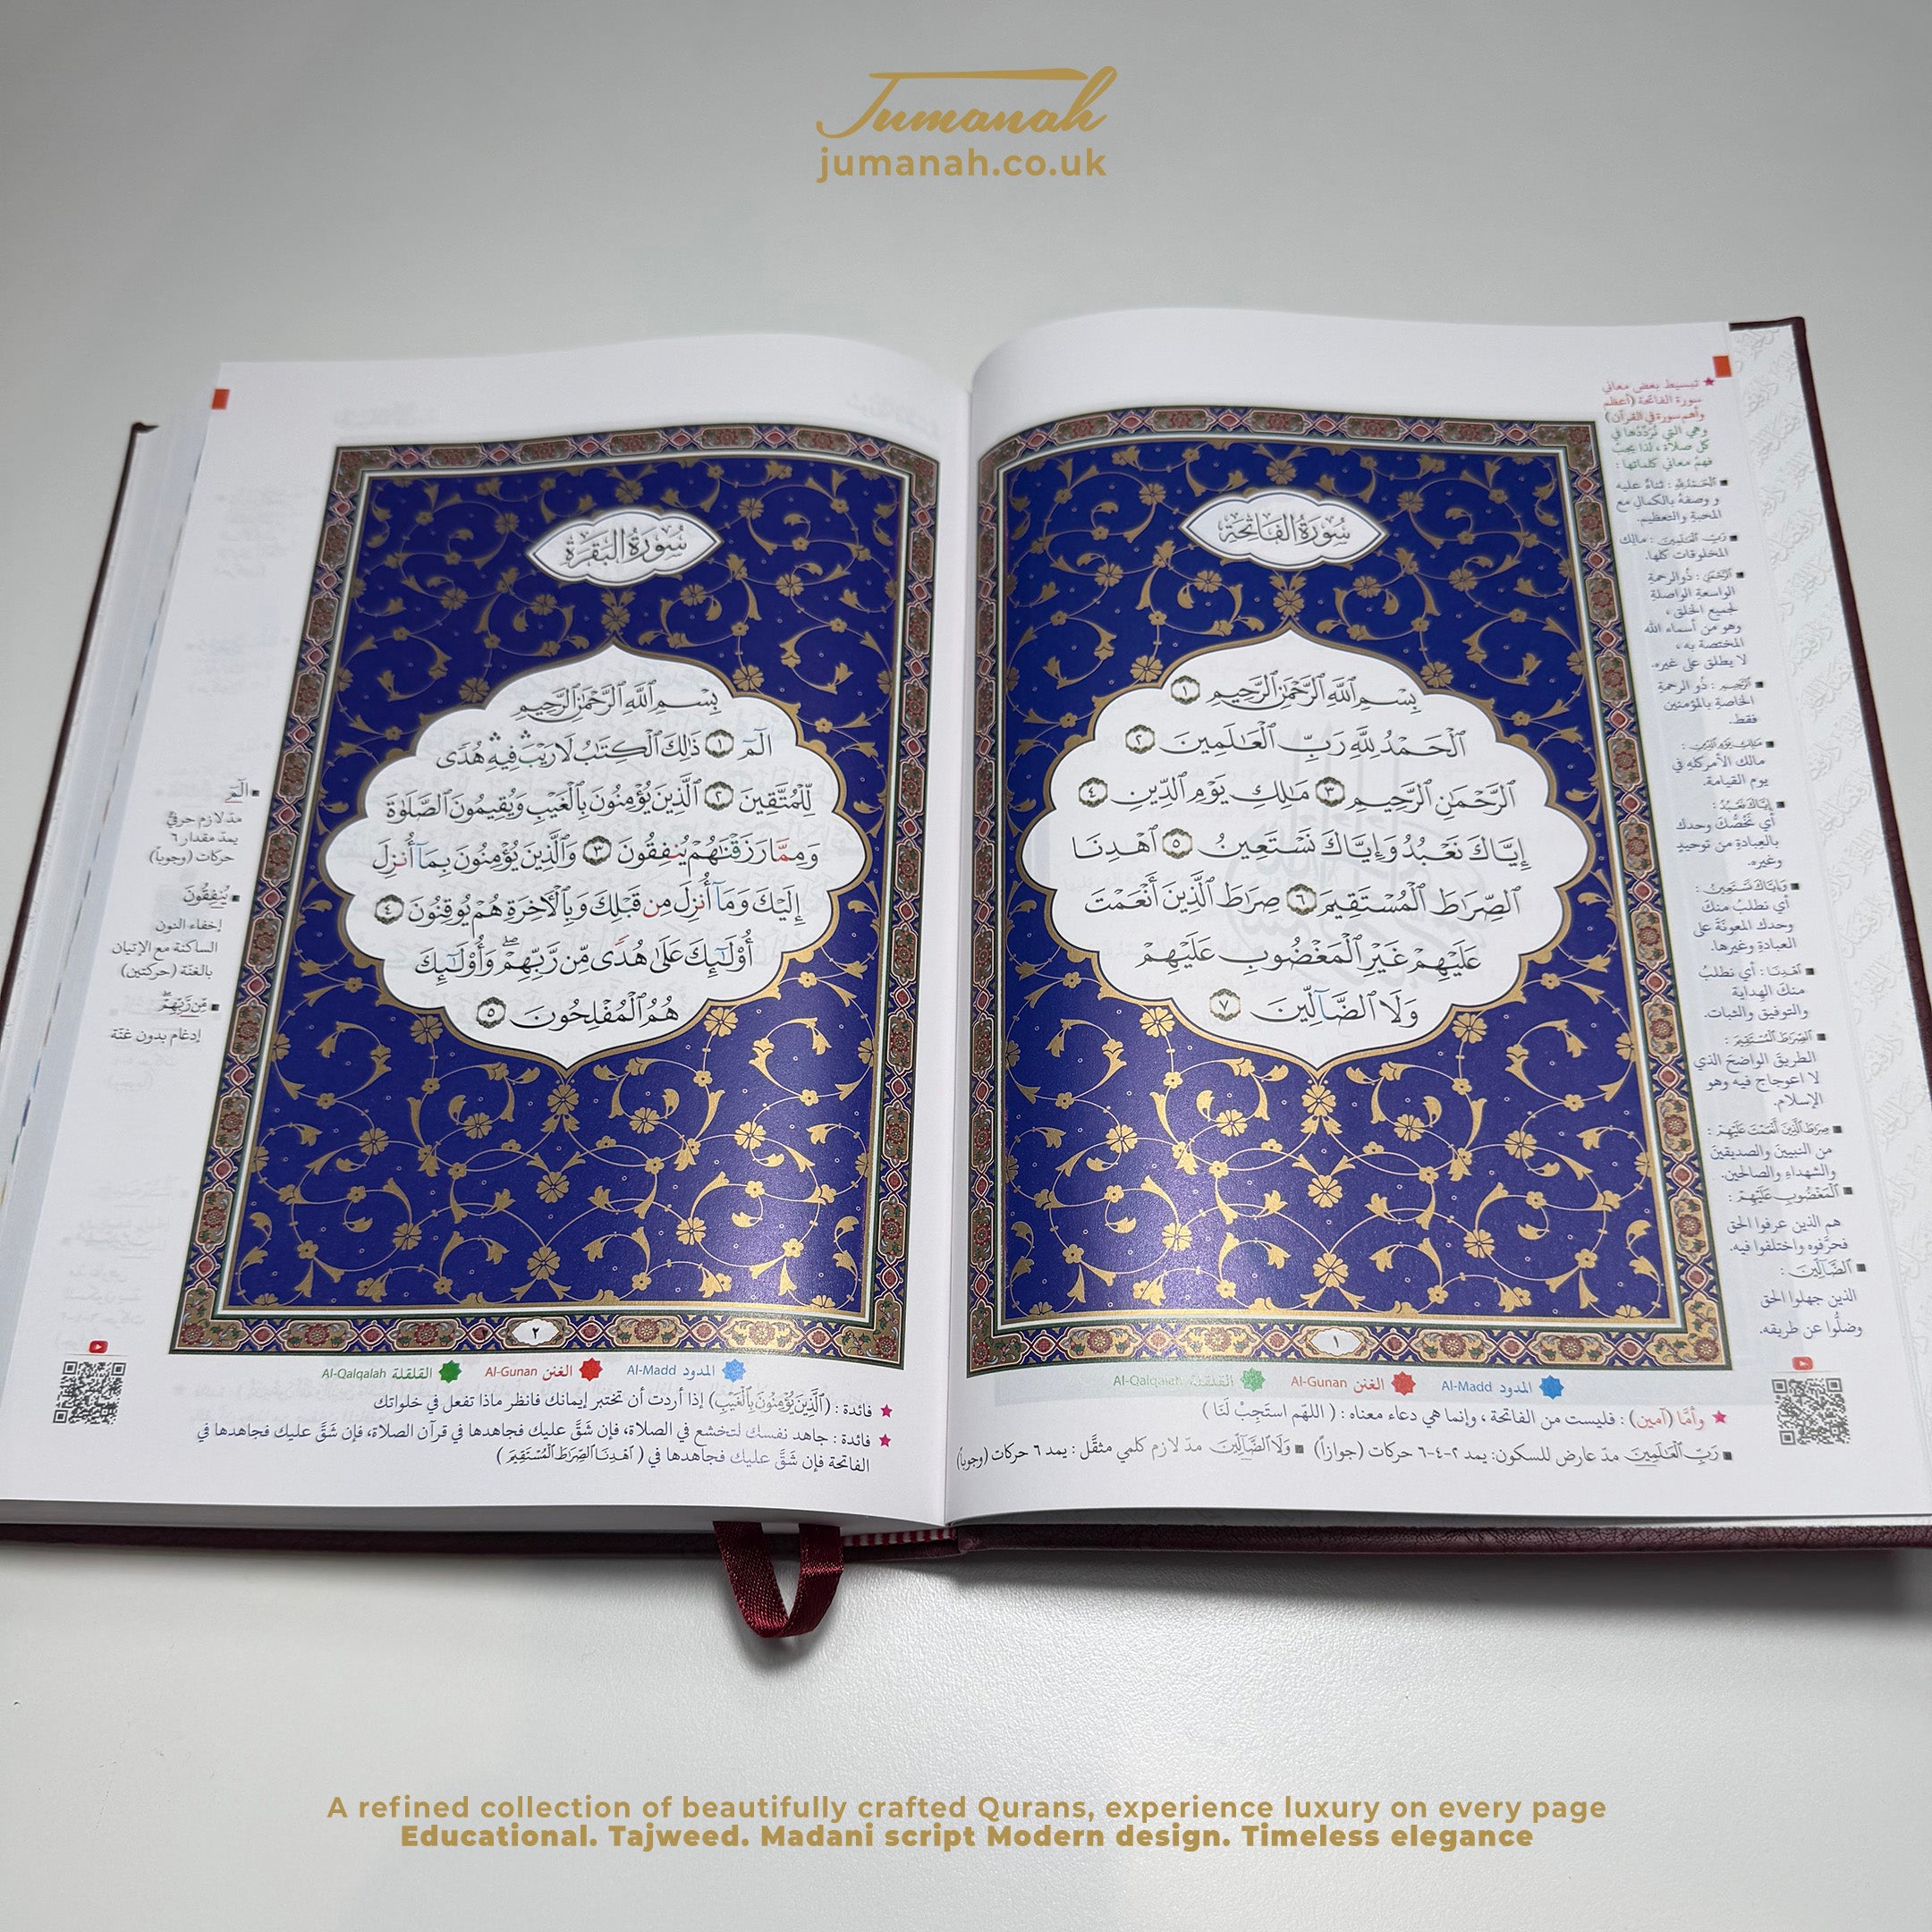 Jumanah
jumanah.co.uk
سُورَةُ الفَاتِحَة
بِسْمِ ٱللَّهِ ٱلرَّحْمَٰنِ ٱلرَّحِيمِ ١
ٱلْحَمْدُ لِلَّهِ رَبِّ ٱلْعَٰلَمِينَ ٢
ٱلرَّحْمَٰنِ ٱلرَّحِيمِ ٣ مَٰلِكِ يَوْمِ ٱلدِّينِ ٤
إِيَّاكَ نَعْبُدُ وَإِيَّاكَ نَسْتَعِينُ ٥ ٱهْدِنَا
ٱلصِّرَٰطَ ٱلْمُسْتَقِيمَ ٦ صِرَٰطَ ٱلَّذِينَ أَنْعَمْتَ
عَلَيْهِمْ غَيْرِ ٱلْمَغْضُوبِ عَلَيْهِمْ
وَلَا ٱلضَّآلِّينَ ٧
١
★ تبسيط بعض معاني
سورة الفاتحة (أعظم
وأهم سورة في القرآن)
وهي التي نُرَدِّدُها في
كل صلاة ، لذا يجب
فهم معاني كلماتها :
■ ٱلْحَمْدُ لِلَّهِ : ثناءٌ عليه
و وصفهُ بالكمالِ مع
المحبة والتعظيم.
■ رَبِّ ٱلْعَٰلَمِينَ : مالك
المخلوقات كلها.
■ ٱلرَّحْمَٰنِ : ذُو الرحمةِ
الواسعةِ الواصلةِ
لجميع الخلق ،
وهو من أسماء الله
المختصة به ،
لا يطلق على غيره.
■ ٱلرَّحِيمِ : ذُو الرحمةِ
الخاصةِ بالمؤمنين
فقط.
■ مَٰلِكِ يَوْمِ ٱلدِّينِ :
مالك الأمر كله في
يوم القيامة.
■ إِيَّاكَ نَعْبُدُ :
أي نَخُصُّكَ وحدك
بالعبادةِ من توحيدٍ
وغيره.
■ وَإِيَّاكَ نَسْتَعِينُ :
أي نطلبُ منكَ
وحدك المعونَةَ على
العبادةِ وغيرها.
■ ٱهْدِنَا : أي نطلبُ
منكَ الهداية
والتوفيق والثبات.
■ ٱلصِّرَٰطَ ٱلْمُسْتَقِيمَ :
الطريق الواضحَ الذي
لا اعوجاج فيه وهو
الإسلام.
■ صِرَٰطَ ٱلَّذِينَ أَنْعَمْتَ عَلَيْهِمْ :
من النبيين والصديقين
والشهداءِ والصالحين.
■ ٱلْمَغْضُوبِ عَلَيْهِمْ :
هم الذين عرفوا الحق
فحرَّفوه واختلفوا فيه.
■ ٱلضَّآلِّينَ :
الذين جهلوا الحق
وضلُّوا عن طريقه.
المدود Al-Madd الغنن Al-Gunan القلقلة Al-Qalqalah
★ وأمَّا (آمين) : فليست من الفاتحة ، وإنما هي دعاء معناه : ( اللهم استَجِبْ لَنَا )
■ رَبِّ ٱلْعَٰلَمِينَ مدّ عارض للسكون: يمد ٢-٤-٦ حركات (جوازاً) ■ وَلَا ٱلضَّآلِّينَ مدّ لازم كلمي مثقَّل : يمد ٦ حركات (وجوباً)
سُورَةُ البَقَرَة
بِسْمِ ٱللَّهِ ٱلرَّحْمَٰنِ ٱلرَّحِيمِ
الٓمٓ ١ ذَٰلِكَ ٱلْكِتَٰبُ لَا رَيْبَ ۛ فِيهِ ۛ هُدًى
لِّلْمُتَّقِينَ ٢ ٱلَّذِينَ يُؤْمِنُونَ بِٱلْغَيْبِ وَيُقِيمُونَ ٱلصَّلَوٰةَ
وَمِمَّا رَزَقْنَٰهُمْ يُنفِقُونَ ٣ وَٱلَّذِينَ يُؤْمِنُونَ بِمَآ أُنزِلَ
إِلَيْكَ وَمَآ أُنزِلَ مِن قَبْلِكَ وَبِٱلْـَٔاخِرَةِ هُمْ يُوقِنُونَ ٤
أُو۟لَٰٓئِكَ عَلَىٰ هُدًى مِّن رَّبِّهِمْ ۖ وَأُو۟لَٰٓئِكَ
هُمُ ٱلْمُفْلِحُونَ ٥
٢
■ الٓمٓ
مدّ لازم حرفيٌّ
يمدّ مقدار ٦
حركات (وجوباً)
■ يُنفِقُونَ
إخفاء النون
الساكنة مع الإتيان
بالغنّة (حركتين)
■ مِّن رَّبِّهِمْ ۖ
إدغام بدون غنّة
المدود Al-Madd الغنن Al-Gunan القلقلة Al-Qalqalah
★ فائدة : (ٱلَّذِينَ يُؤْمِنُونَ بِٱلْغَيْبِ) إذا أردت أن تختبر إيمانك فانظر ماذا تفعل في خلواتك
★ فائدة : جاهد نفسك لتخشع في الصلاة، فإن شَقَّ عليك فجاهدها في قرآن الصلاة، فإن شَقَّ عليك فجاهدها في
الفاتحة فإن شَقَّ عليك فجاهدها في ( ٱهْدِنَا ٱلصِّرَٰطَ ٱلْمُسْتَقِيمَ )
A refined collection of beautifully crafted Qurans, experience luxury on every page
Educational. Tajweed. Madani script Modern design. Timeless elegance